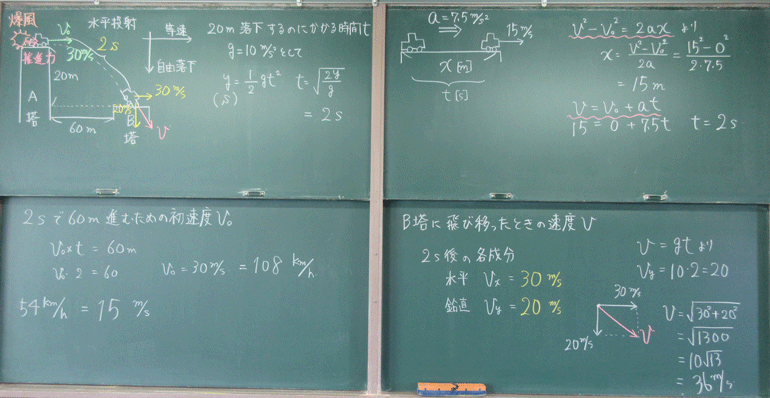 爆風
推進力
水平投射
V₀
30m/s
2s
等速
自由落下
20m
A
塔
60m
20m/s
30m/s
B
塔
V
20m落下するのにかかる時間t
g=10m/s²として
y=1/2gt²  t=√(2y/g)
(5)
=2s
a=7.5m/s²
15m/s
x[m]
t[s]
V²-V₀²=2axより
x=(V²-V₀²)/2a=(15²-0²)/2・7.5
=15m
V=V₀+at
15=0+7.5t  t=2s
2sで60m進むための初速度V₀
V₀×t=60m
V₀・2=60  V₀=30m/s=108km/h
54km/h=15m/s
B塔に飛び移ったときの速度V
2s後の各成分
水平 Vx=30m/s
鉛直 Vy=20m/s
V=gtより
Vy=10・2=20
30m/s
20m/s
V
V=√(30²+20²)
=√1300
=10√13
=36m/s